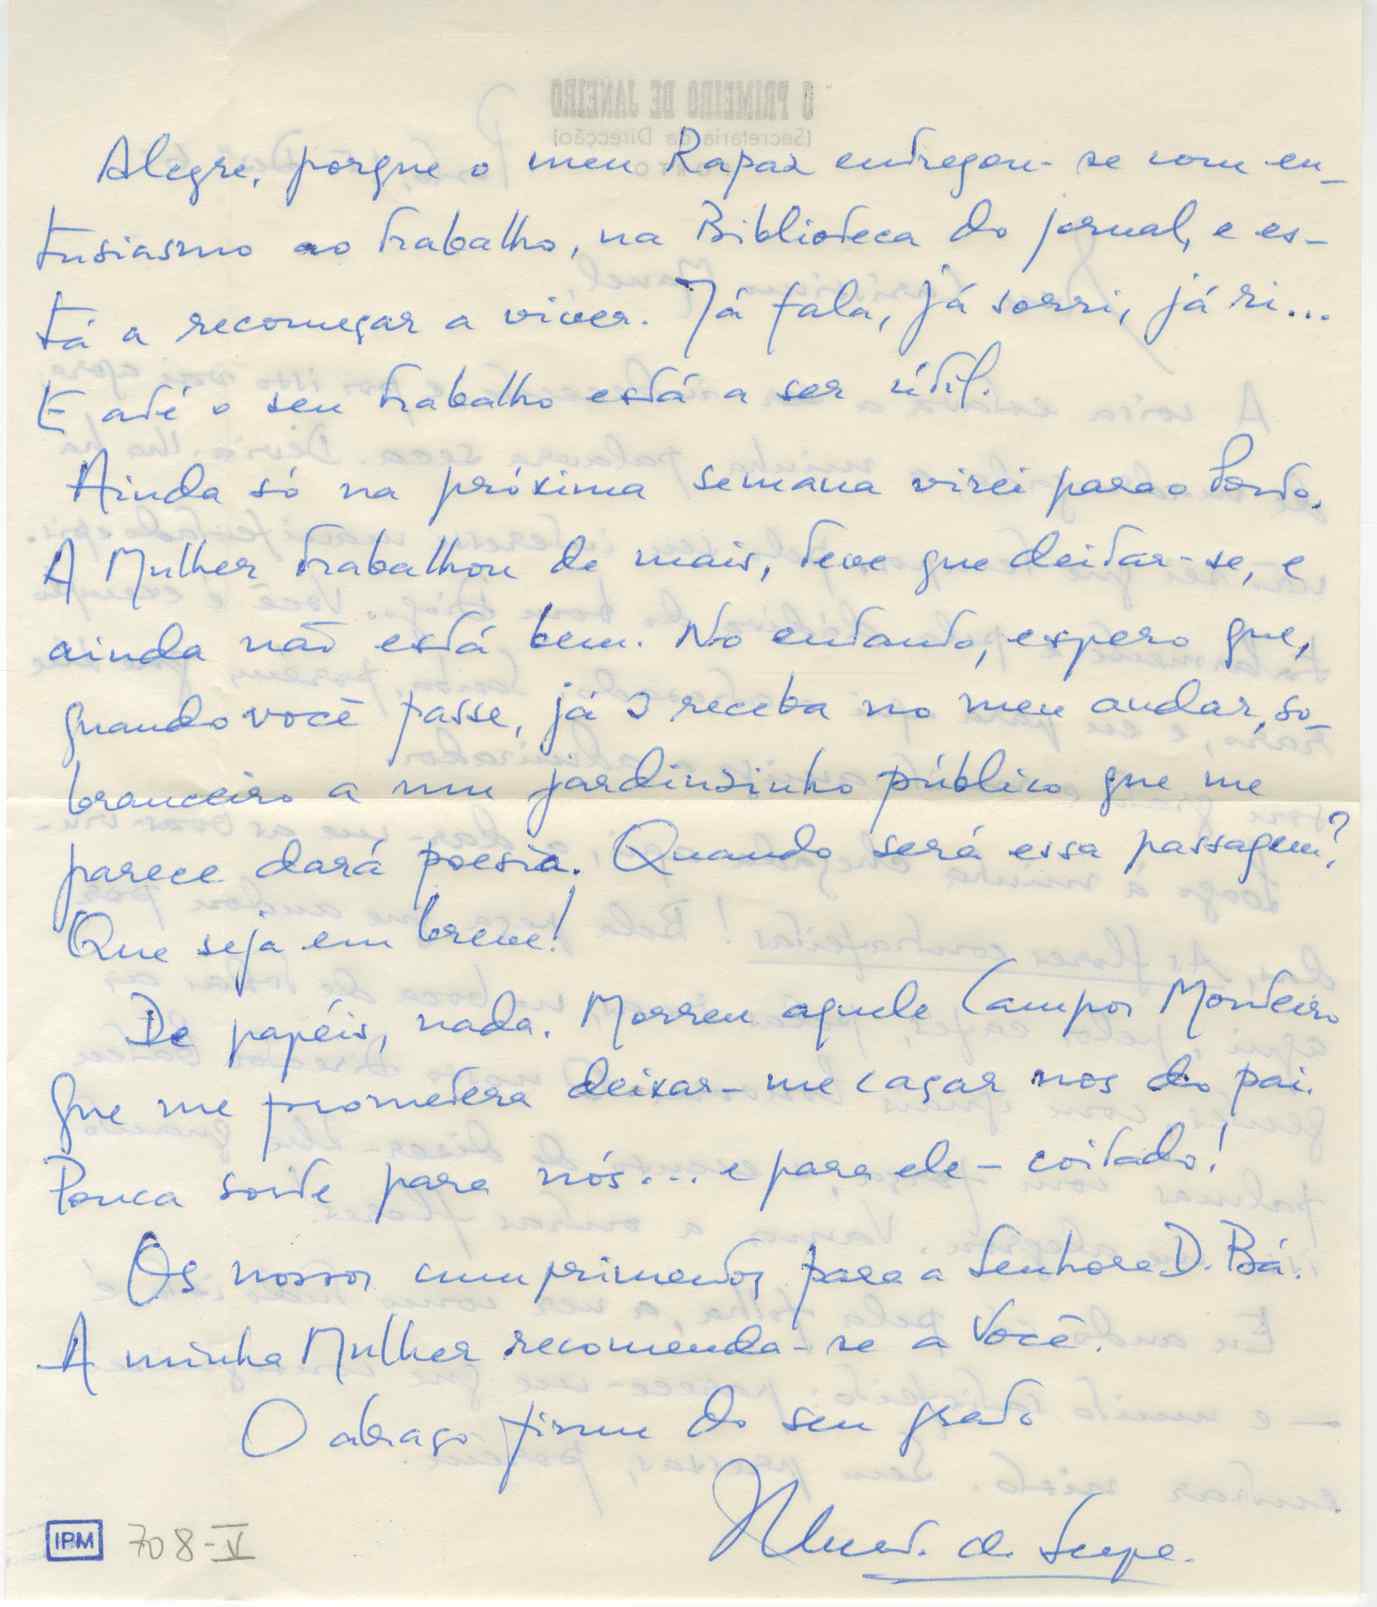 O PRIMEIRO DE JANEIRO
(Secretaria da Direcção)
Alegre, porque o meu Rapaz entregou-se com en-
tusiasmo ao trabalho, na Biblioteca do jornal, e es-
tá a recomeçar a viver. Já fala, já sorri, já ri...
E até o seu trabalho está a ser útil.
Ainda só na próxima semana virei para o Porto.
A Mulher trabalhou de mais, teve que deitar-se, e
ainda não está bem. No entanto, espero que,
quando você passe, já o receba no meu andar, so-
branceiro a um jardinzinho público que me
parece dará poesia. Quando será essa passagem?
Que seja em breve!
De papéis, nada. Morreu aquele Campos Monteiro
que me prometera deixar-me caçar nos do pai.
Pouca sorte para nós... e para ele - coitado!
Os nossos cumprimentos para a Senhora D. Bá.
A minha Mulher recomenda-se a Você.
O abraço firme do seu grato
de
IPM 708-V